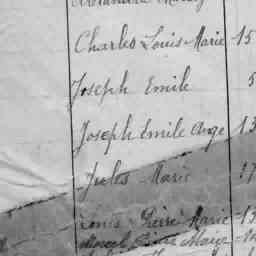 Charles Louis Marie 15
Joseph Emile 5
Joseph Emile Ange 13
Jules Marie 17
Louis Pierre Marie 13
Marcel